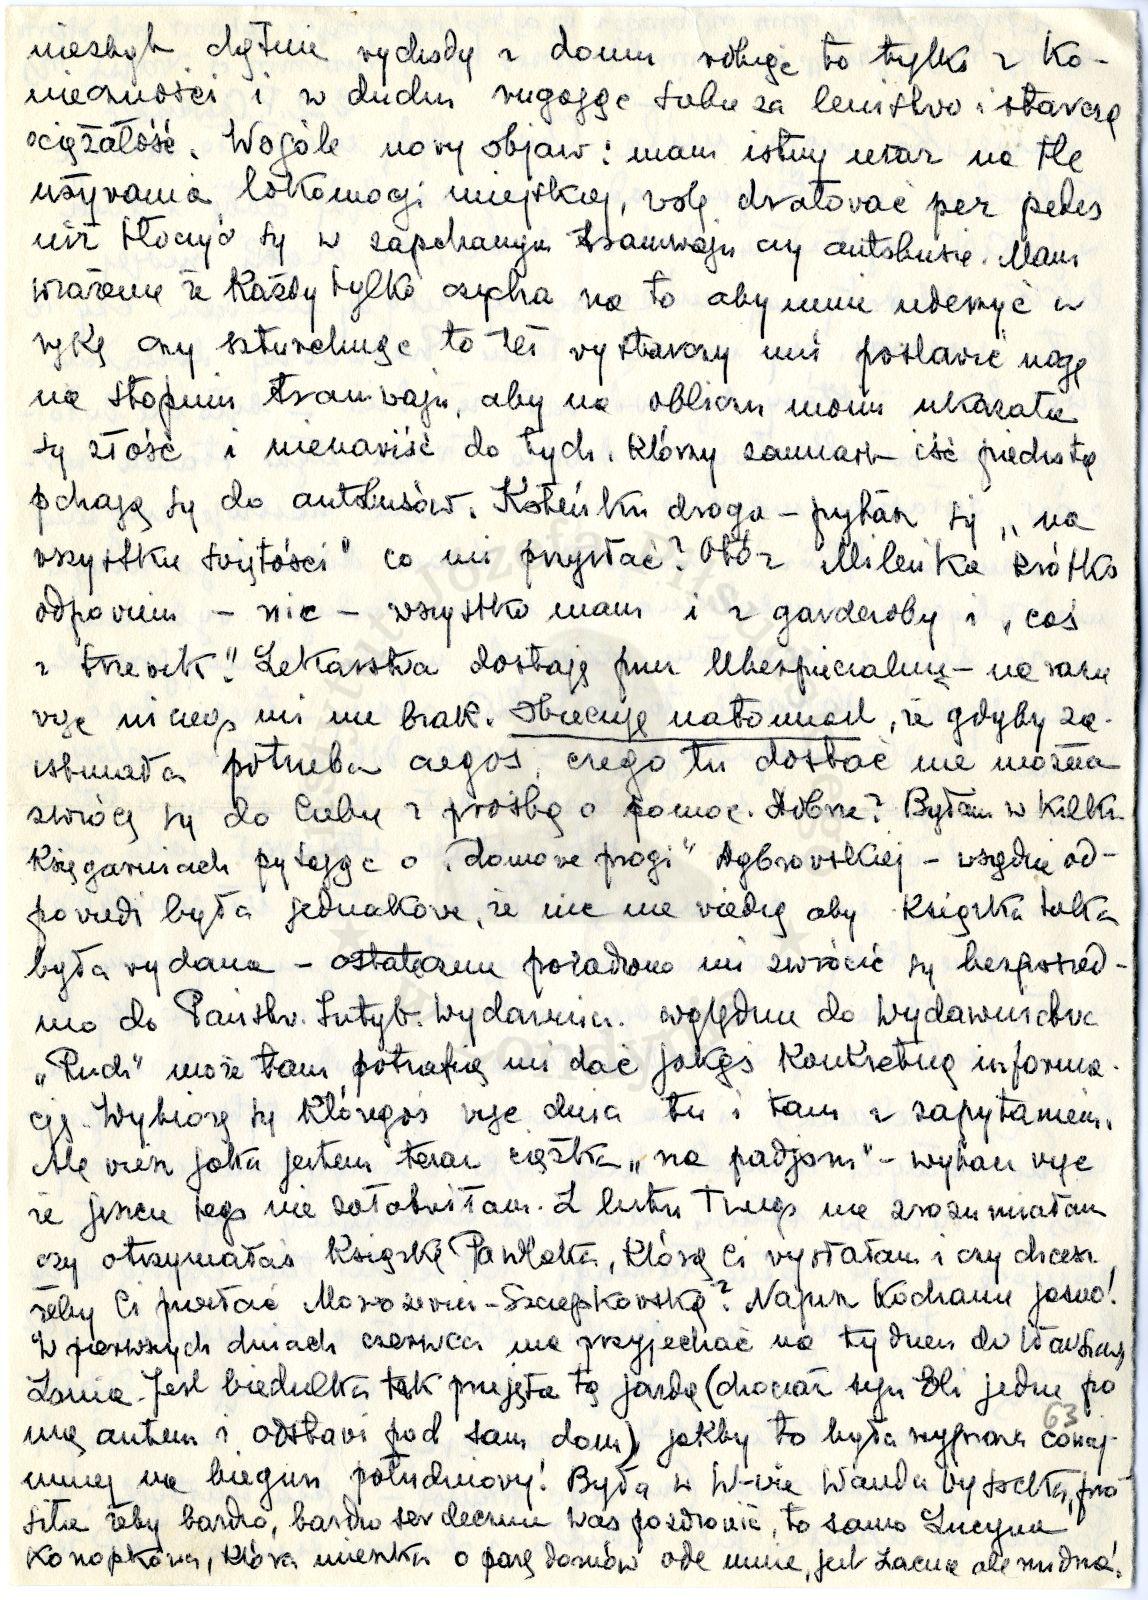 niezbyt chętnie wychodzę z domu robiąc to tylko z ko-
nieczności i w duchu rugając siebie za lenistwo i starczą
ociężałość. Wogóle nowy objaw: mam istny uraz na tle
używania lokomocji miejskiej, wolę dralować per pedes
niż tłoczyć się w zapchanym tramwaju czy autobusie. Mam
wrażenie że każdy tylko czycha na to aby mnie uderzyć w
rękę czy szturchnąć to też wystarczy mi postawić nogę
na stopniu tramwaju, aby na obliczu moim ukazała
się złość i nienawiść do tych, którzy zamiast iść piechotą
pchają się do autobusów. Koteńku droga – pytasz się „na
wszystkie świętości" co mi przysłać? Otóż Mileńka krótko
odpowiem – nic – wszystko mam i z garderoby i „coś
z trewik". Lekarstwa dostaję przez Ubezpieczalnię – na razie
więc niczego mi nie brak. Obiecuję natomiast, że gdyby za-
istniała potrzeba czegoś, czego tu dostać nie można
zwrócę się do Ciebie z prośbą o pomoc. Dobrze? Byłam w kilku
księgarniach pytając o „domowe progi" Dąbrowskiej – wszędzie od-
powiedź była jednakowa, że nic nie wiedzą aby książka taka
była wydana – ostatecznie poradzono mi zwrócić się bezpośred-
nio do Państw. Instyt. Wydawnicz. względnie do Wydawnictwa
„Ruch" może tam potrafią mi dać jakąś konkretną informa-
cję. Wybiorę się któregoś więc dnia tu i tam z zapytaniem.
Ale wiesz jaka jestem teraz ciężka „na padjom" – wybacz więc
że jeszcze tego nie załatwiłam. Z listu Twego nie zrozumiałam
czy otrzymałaś książkę Pawłoka, którą Ci wysłałam i czy chcesz
żeby Ci przesłać Morozowicz-Szczepkowską? Napisz kochanie jasno!
W pierwszych dniach czerwca ma przyjechać na tydzień do Warszawy
Zonia. Jest biedulka tak przejęta tą jazdą (chociaż syn Eli jedzie po
nią autem i odstawi pod sam dom) jakby to była wyprawa conaj-
63
mniej na biegun południowy! Była w W-wie Wanda Wysocka, pro-
siła żeby bardzo, bardzo serdecznie Was pozdrowić, to samo Lucyna
Konopkowa, która mieszka o parę domów ode mnie, jest zacna ale nudna!